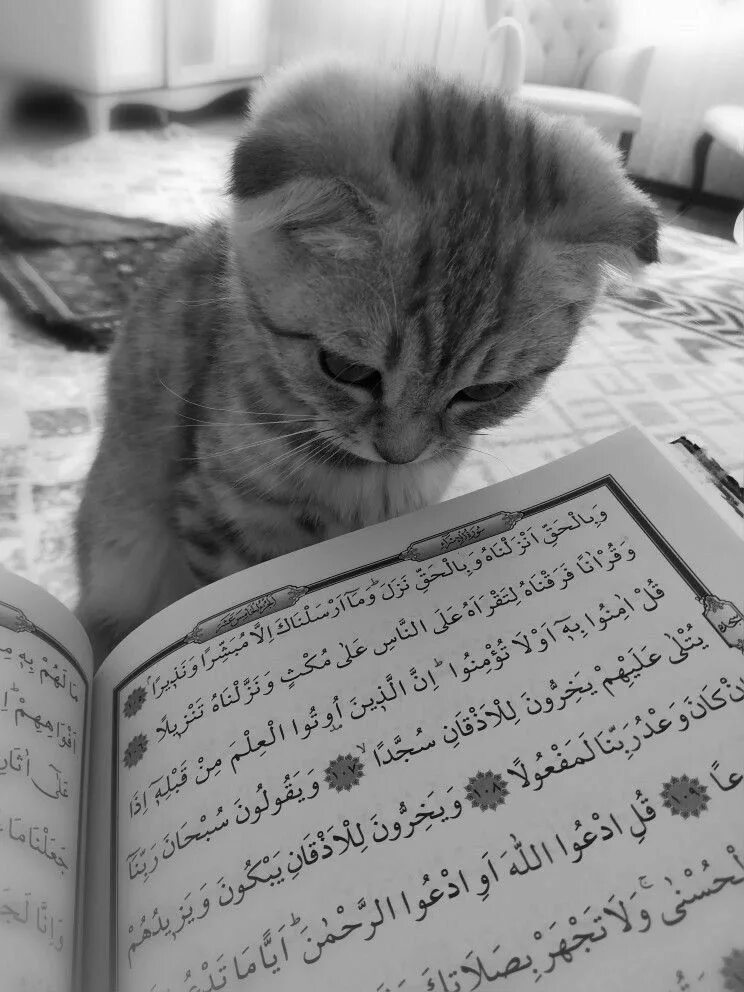 سُورَةُ الْاِسْرَاءِ
وَبِالْحَقِّ اَنْزَلْنَاهُ وَبِالْحَقِّ نَزَلَۜ وَمَٓا اَرْسَلْنَاكَ اِلَّا مُبَشِّرًا وَنَذِيرًاۢ ١٠٥
وَقُرْاٰنًا فَرَقْنَاهُ لِتَقْرَاَهُ عَلَى النَّاسِ عَلٰى مُكْثٍ وَنَزَّلْنَاهُ تَنْزِيلًا ١٠٦
قُلْ اٰمِنُوا بِهٖٓ اَوْ لَا تُؤْمِنُواۜ اِنَّ الَّذِينَ اُو۫تُوا الْعِلْمَ مِنْ قَبْلِهٖٓ اِذَا
يُتْلٰى عَلَيْهِمْ يَخِرُّونَ لِلْاَذْقَانِ سُجَّدًاۙ ١٠٧ وَيَقُولُونَ سُبْحَانَ رَبِّنَٓا
اِنْ كَانَ وَعْدُ رَبِّنَا لَمَفْعُولًا ١٠٨ وَيَخِرُّونَ لِلْاَذْقَانِ يَبْكُونَ وَيَزِيدُهُمْ
عًا ١٠٩ قُلِ ادْعُوا اللّٰهَ اَوِ ادْعُوا الرَّحْمٰنَۜ اَيًّا مَا تَدْعُ
لْحُسْنٰىۚ وَلَا تَجْهَرْ بِصَلَاتِكَ
مَا لَهُمْ بِهٖ مِ
اَفْوَاهِهِمْۜ
عَلٰٓى اٰثَارِ
جَعَلْنَا مَا
وَاِنَّا لَجَ